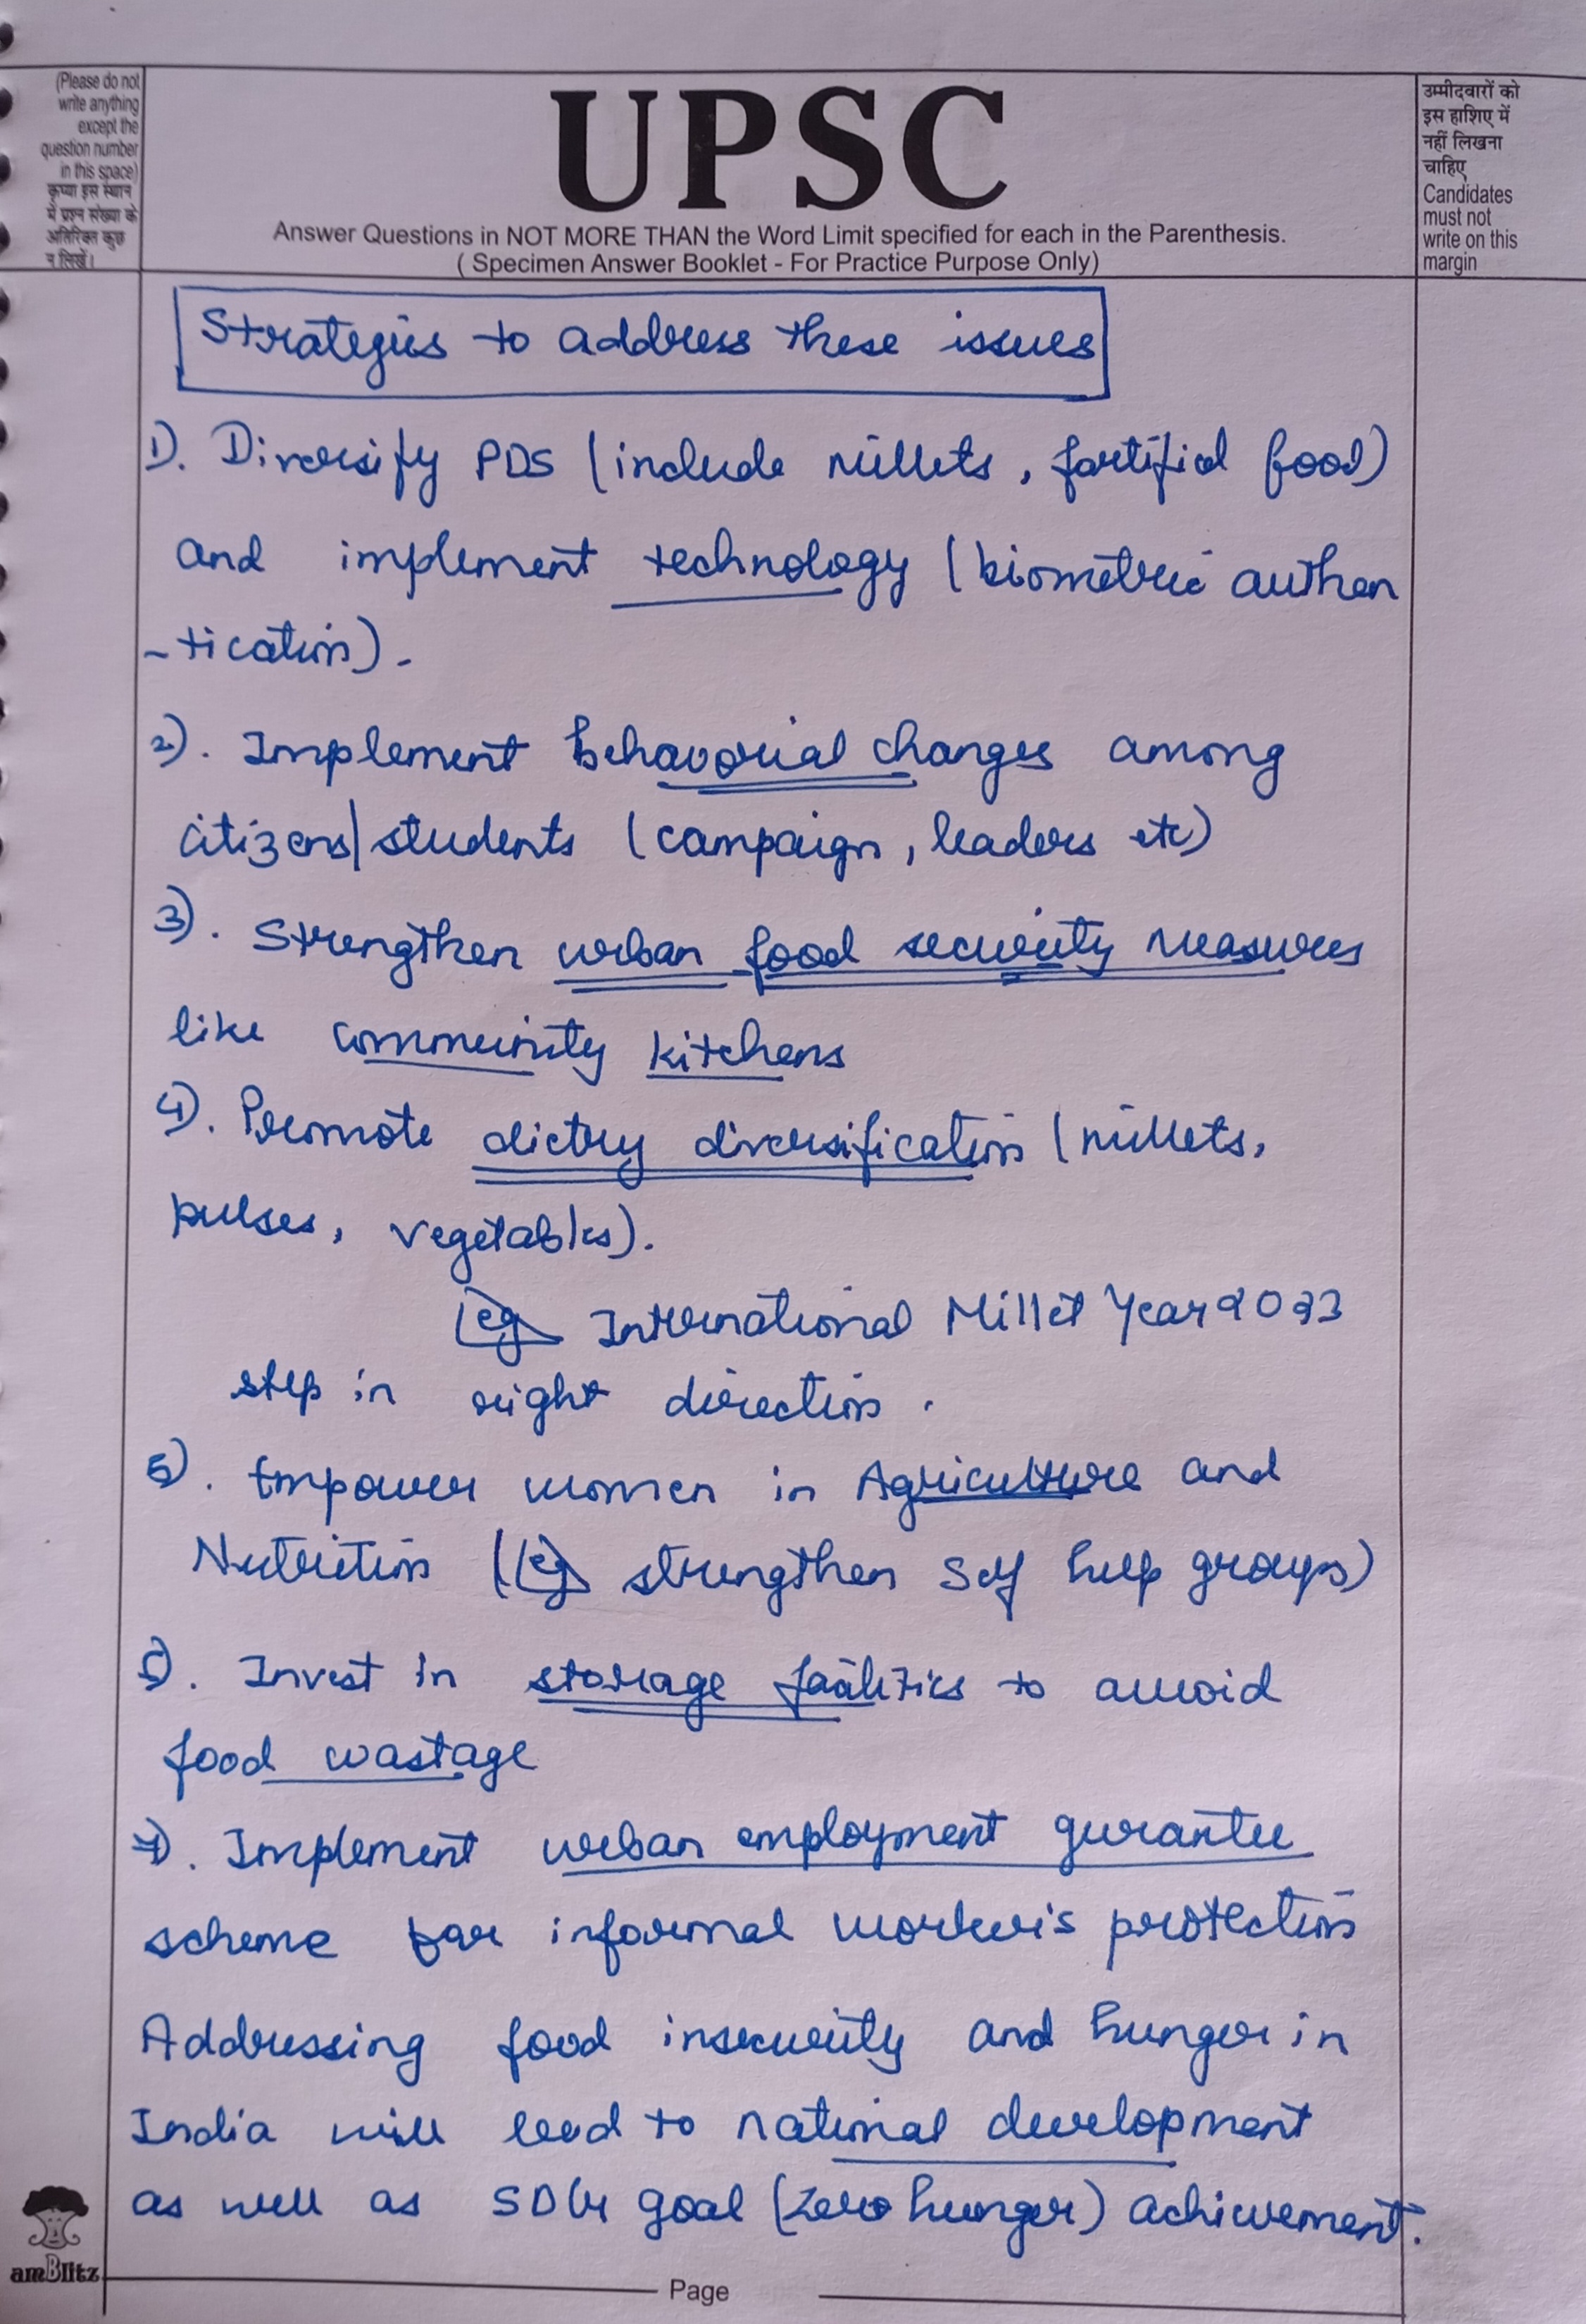 (Please do not
write anything
except the
question number
in this space)
कृप्या इस स्थान
में प्रश्न संख्या के
अतिरिक्त कुछ
न लिखें।
UPSC
Answer Questions in NOT MORE THAN the Word Limit specified for each in the Parenthesis.
( Specimen Answer Booklet - For Practice Purpose Only)
उम्मीदवारों को
इस हाशिए में
नहीं लिखना
चाहिए
Candidates
must not
write on this
margin
Strategies to address these issues
1). Diversify PDS (include millets, fortified food)
and implement technology (biometric authen
-tication).
2). Implement behavorial changes among
citizens/students (campaign, leaders etc)
3). Strengthen urban food security measures
like community kitchens
4). Promote dietry diversification (millets,
pulses, vegetables).
eg International Millet Year 2023
step in right direction.
5). Empower women in Agriculture and
Nutrition (eg strengthen self help groups)
6). Invest in storage facilities to avoid
food wastage
7). Implement urban employment gurantee
scheme for informal worker's protection
Addressing food insecurity and hunger in
India will lead to national development
as well as SDG goal (zero hunger) achievement.
amBlitz
Page